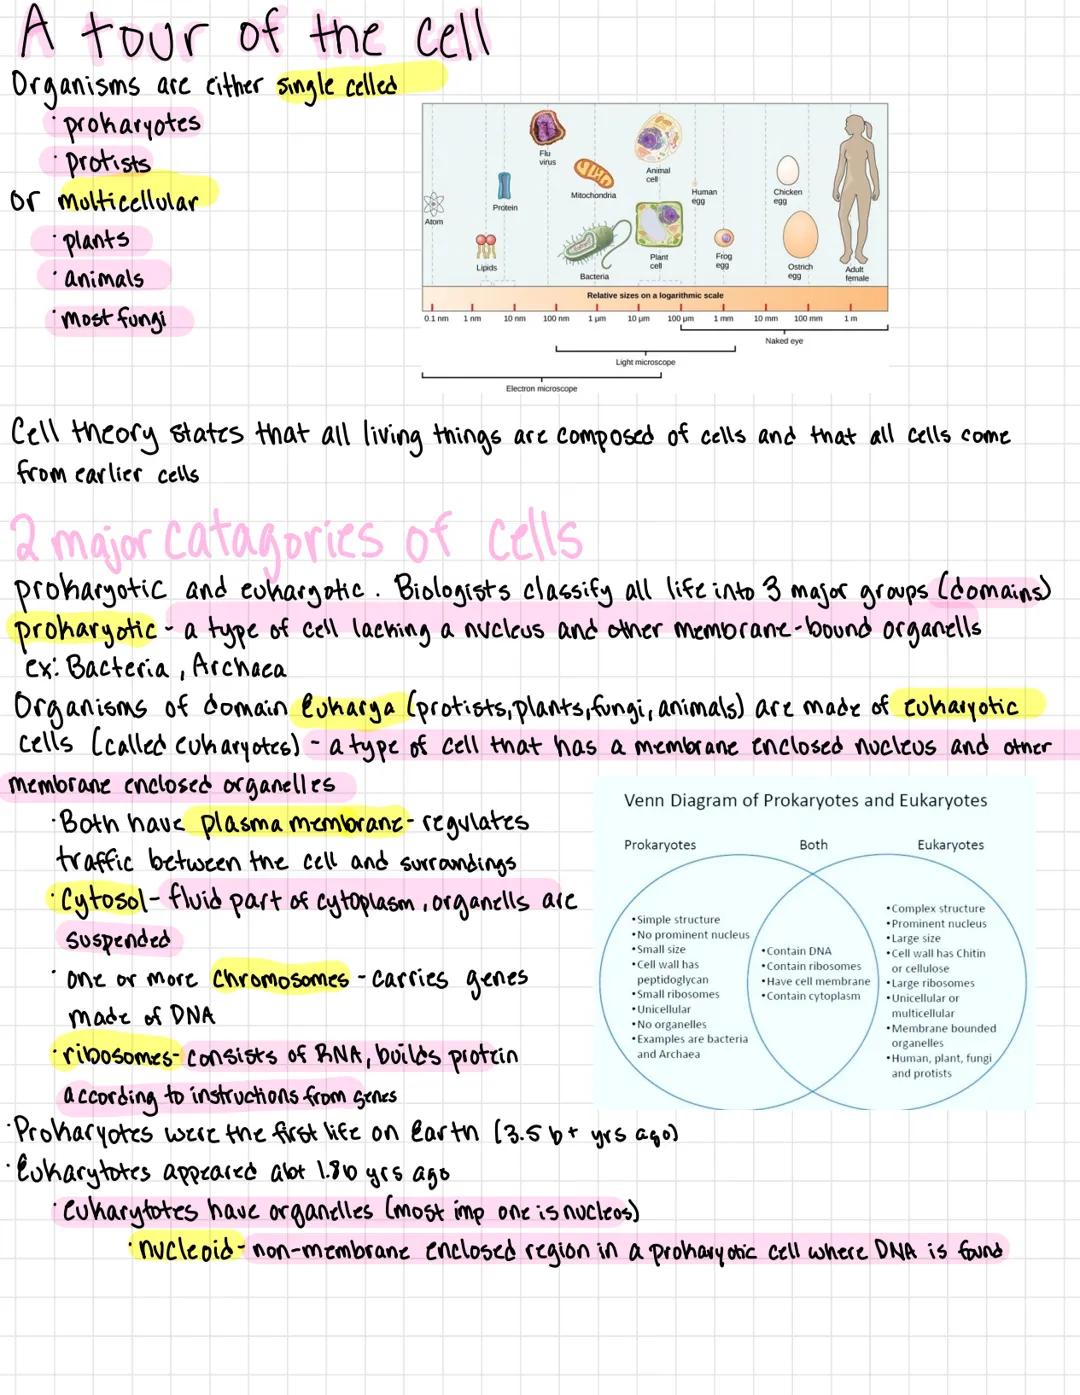 A tour of the cell
Organisms are either single celled
· prokaryotes
· Protists
or multicellular
· plants
· animals
· Most fungi
Atom
Lipids
Protein
Flu
virus
Mitochondria
Bacteria
Animal
cell
Plant
cell
Human
egg
Frog
egg
Chicken
egg
Ostrich
egg
Adult
female
Relative sizes on a logarithmic scale
0.1 nm 1 nm 10 nm 100 nm 1 µm 10 µm 100 µm 1 mm 10 mm 100 mm 1 m
Naked eye
Light microscope
Electron microscope
Cell theory states that all living things are composed of cells and that all cells come
from earlier cells
2 major catagories of cells
prokaryotic and eukaryotic. Biologists classify all life into 3 major groups (domains)
prokaryotic - a type of cell lacking a nucleus and other membrane-bound organells
ex: Bacteria, Archaea
Organisms of domain Eukarya (protists, plants, fungi, animals) are made of eukaryotic
cells (called eukaryotes) - a type of cell that has a membrane enclosed nucleus and other
membrane enclosed organelles
· Both have plasma membrane - regulates
traffic between the cell and surroundings
· Cytosol - fluid part of cytoplasm, organells are
suspended
· one or more chromosomes - carries genes
made of DNA
· ribosomes - consists of RNA, builds protein
according to instructions from genes
Venn Diagram of Prokaryotes and Eukaryotes
Prokaryotes Both Eukaryotes
• Simple structure
• No prominent nucleus
• Small size
• Cell wall has
peptidoglycan
• Small ribosomes
• Unicellular
• No organelles
• Examples are bacteria
and Archaea
• Contain DNA
• Contain ribosomes
• Have cell membrane
• Contain cytoplasm
• Complex structure
• Prominent nucleus
• Large size
• Cell wall has Chitin
or cellulose
• Large ribosomes
• Unicellular or
multicellular
• Membrane bounded
organelles
• Human, plant, fungi
and protists
· Prokaryotes were the first life on Earth (3.5 b+ yrs ago)
· Eukarytotes appeared abt 1.8b yrs ago
· Eukarytotes have organelles (most imp one is nucleos)
· nucleoid - non-membrane enclosed region in a prokaryotic cell where DNA is found